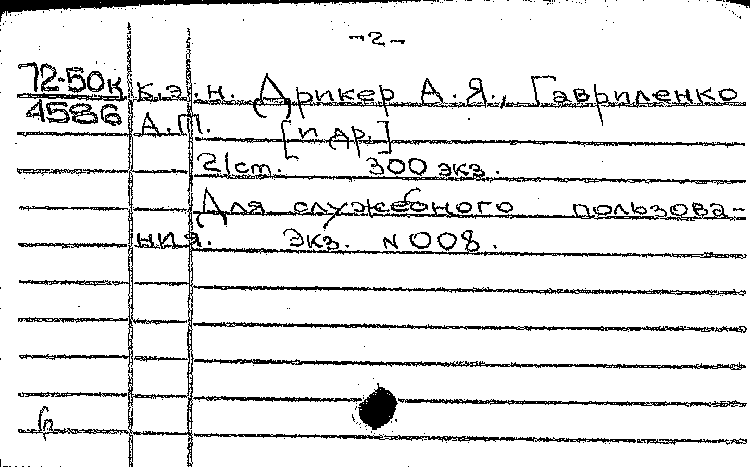 -2-
72-50к к.э.н. Дрикер А.Я., Гавриленко
4586 А.П. [и др.]
21ст. 300 экз.
Для служебного пользова-
ния. экз. №008.
б